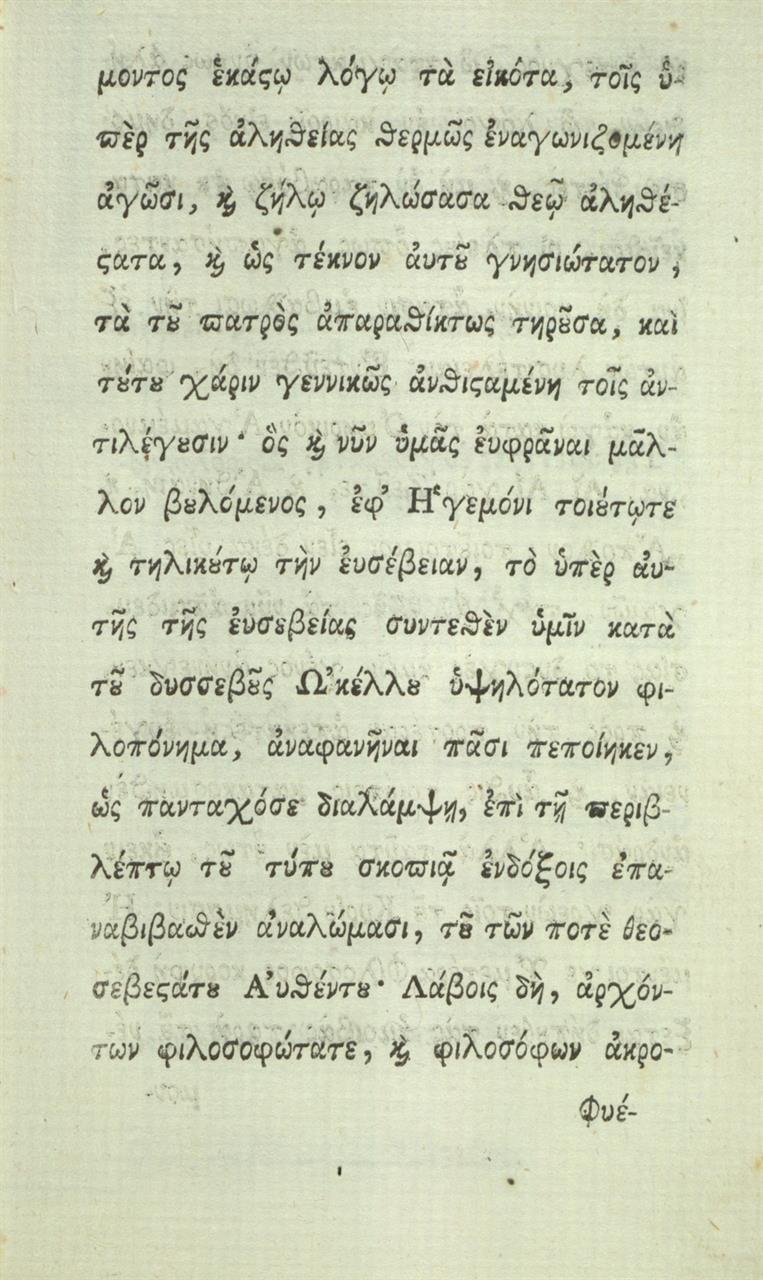 μοντος ἑκάϛῳ λόγῳ τὰ εἰκότα, τοῖς ὑ-
πὲρ τῆς ἀληθείας θερμῶς ἐναγωνιζομένη
ἀγῶσι, ϗ ζήλῳ ζηλώσασα θεῷ ἀληθέ-
ϛατα, ϗ ὡς τέκνον ἀυτȣ͂ γνησιώτατον,
τὰ τȣ͂ πατρὸς ἀπαραθίκτως τηρȣ͂σα, καὶ
τȣ́τȣ χάριν γεννικῶς ἀνθιϛαμένη τοῖς ἀν-
τιλέγȣσιν· ὃς ϗ νῦν ὑμᾶς ἐυφρᾶναι μᾶλ-
λον βȣλόμενος, ἐφ' Ἡγεμόνι τοιȣ́τῳτε
ϗ τηλικȣ́τῳ τὴν ἐυσέβειαν, τὸ ὑπὲρ ἀυ-
τῆς τῆς ἐυσεβείας συντεθὲν ὑμῖν κατὰ
τȣ͂ δυσσεβȣ͂ς Ὠκέλλȣ ὑψηλότατον φι-
λοπόνημα, ἀναφανῆναι πᾶσι πεποίηκεν,
ὡς πανταχόσε διαλάμψῃ, ἐπὶ τῇ περιβ-
λέπτῳ τȣ͂ τύπȣ σκοπιᾷ ἐνδόξοις ἐπα-
ναβιβασθὲν ἀναλώμασι, τȣ͂ τῶν ποτὲ θεο-
σεβεϛάτȣ Ἀυθέντȣ· Λάβοις δὴ, ἀρχόν-
των φιλοσοφώτατε, ϗ φιλοσόφων ἀκρο-
φυέ-